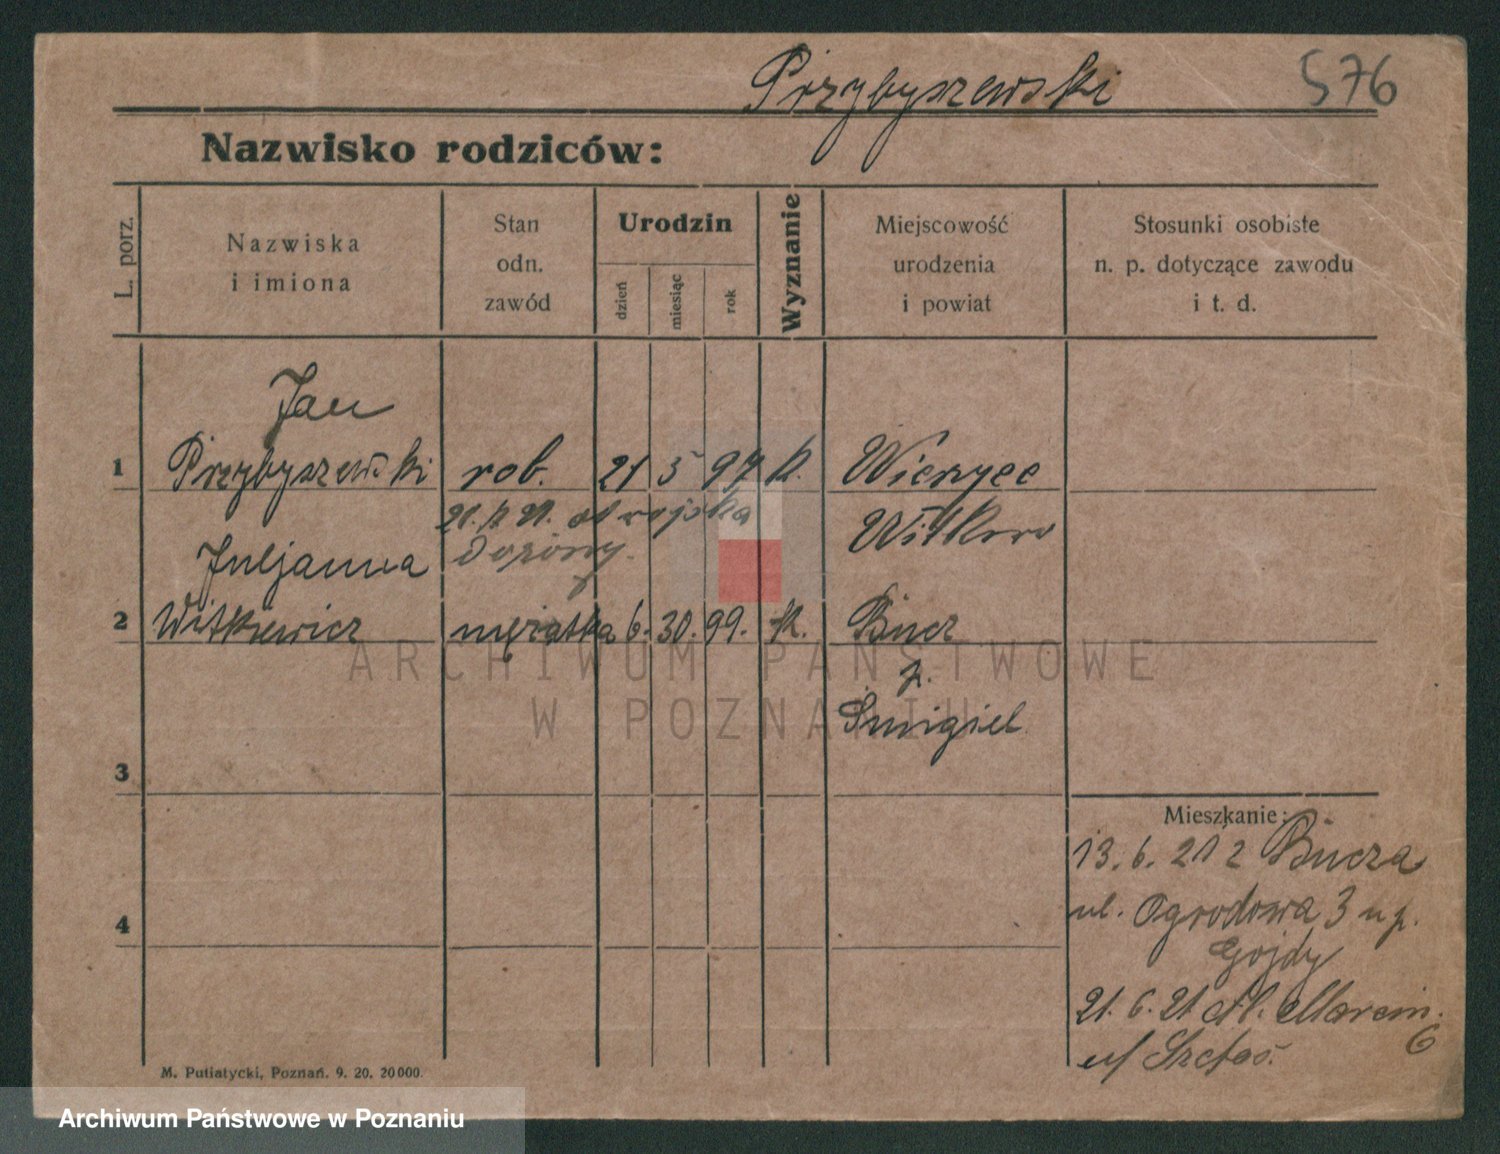 Przybyszewski 576
Nazwisko rodziców:
L. porz.
Nazwiska
i imiona
Stan
odn.
zawód
Urodzin
dzień
miesiąc
rok
Wyznanie
Miejscowość
urodzenia
i powiat
Stosunki osobiste
n. p. dotyczące zawodu
i t. d.
Jan
1 Przybyszewski rob. 21 5 97 k.
Witkowo
Juljanna
2 Witkiewicz mężatka 6. 30. 99. k. Bucz
p.
Śmigiel
3
4
Mieszkanie:
13. 6. 21 z Bucza
ul. Ogrodowa 3 u p.
Gojdy
21. 6. 21 Marcin.
6
M. Putiatycki, Poznań. 9. 20. 20000.
ARCHIWUM PAŃSTWOWE
W POZNANIU
Archiwum Państwowe w Poznaniu